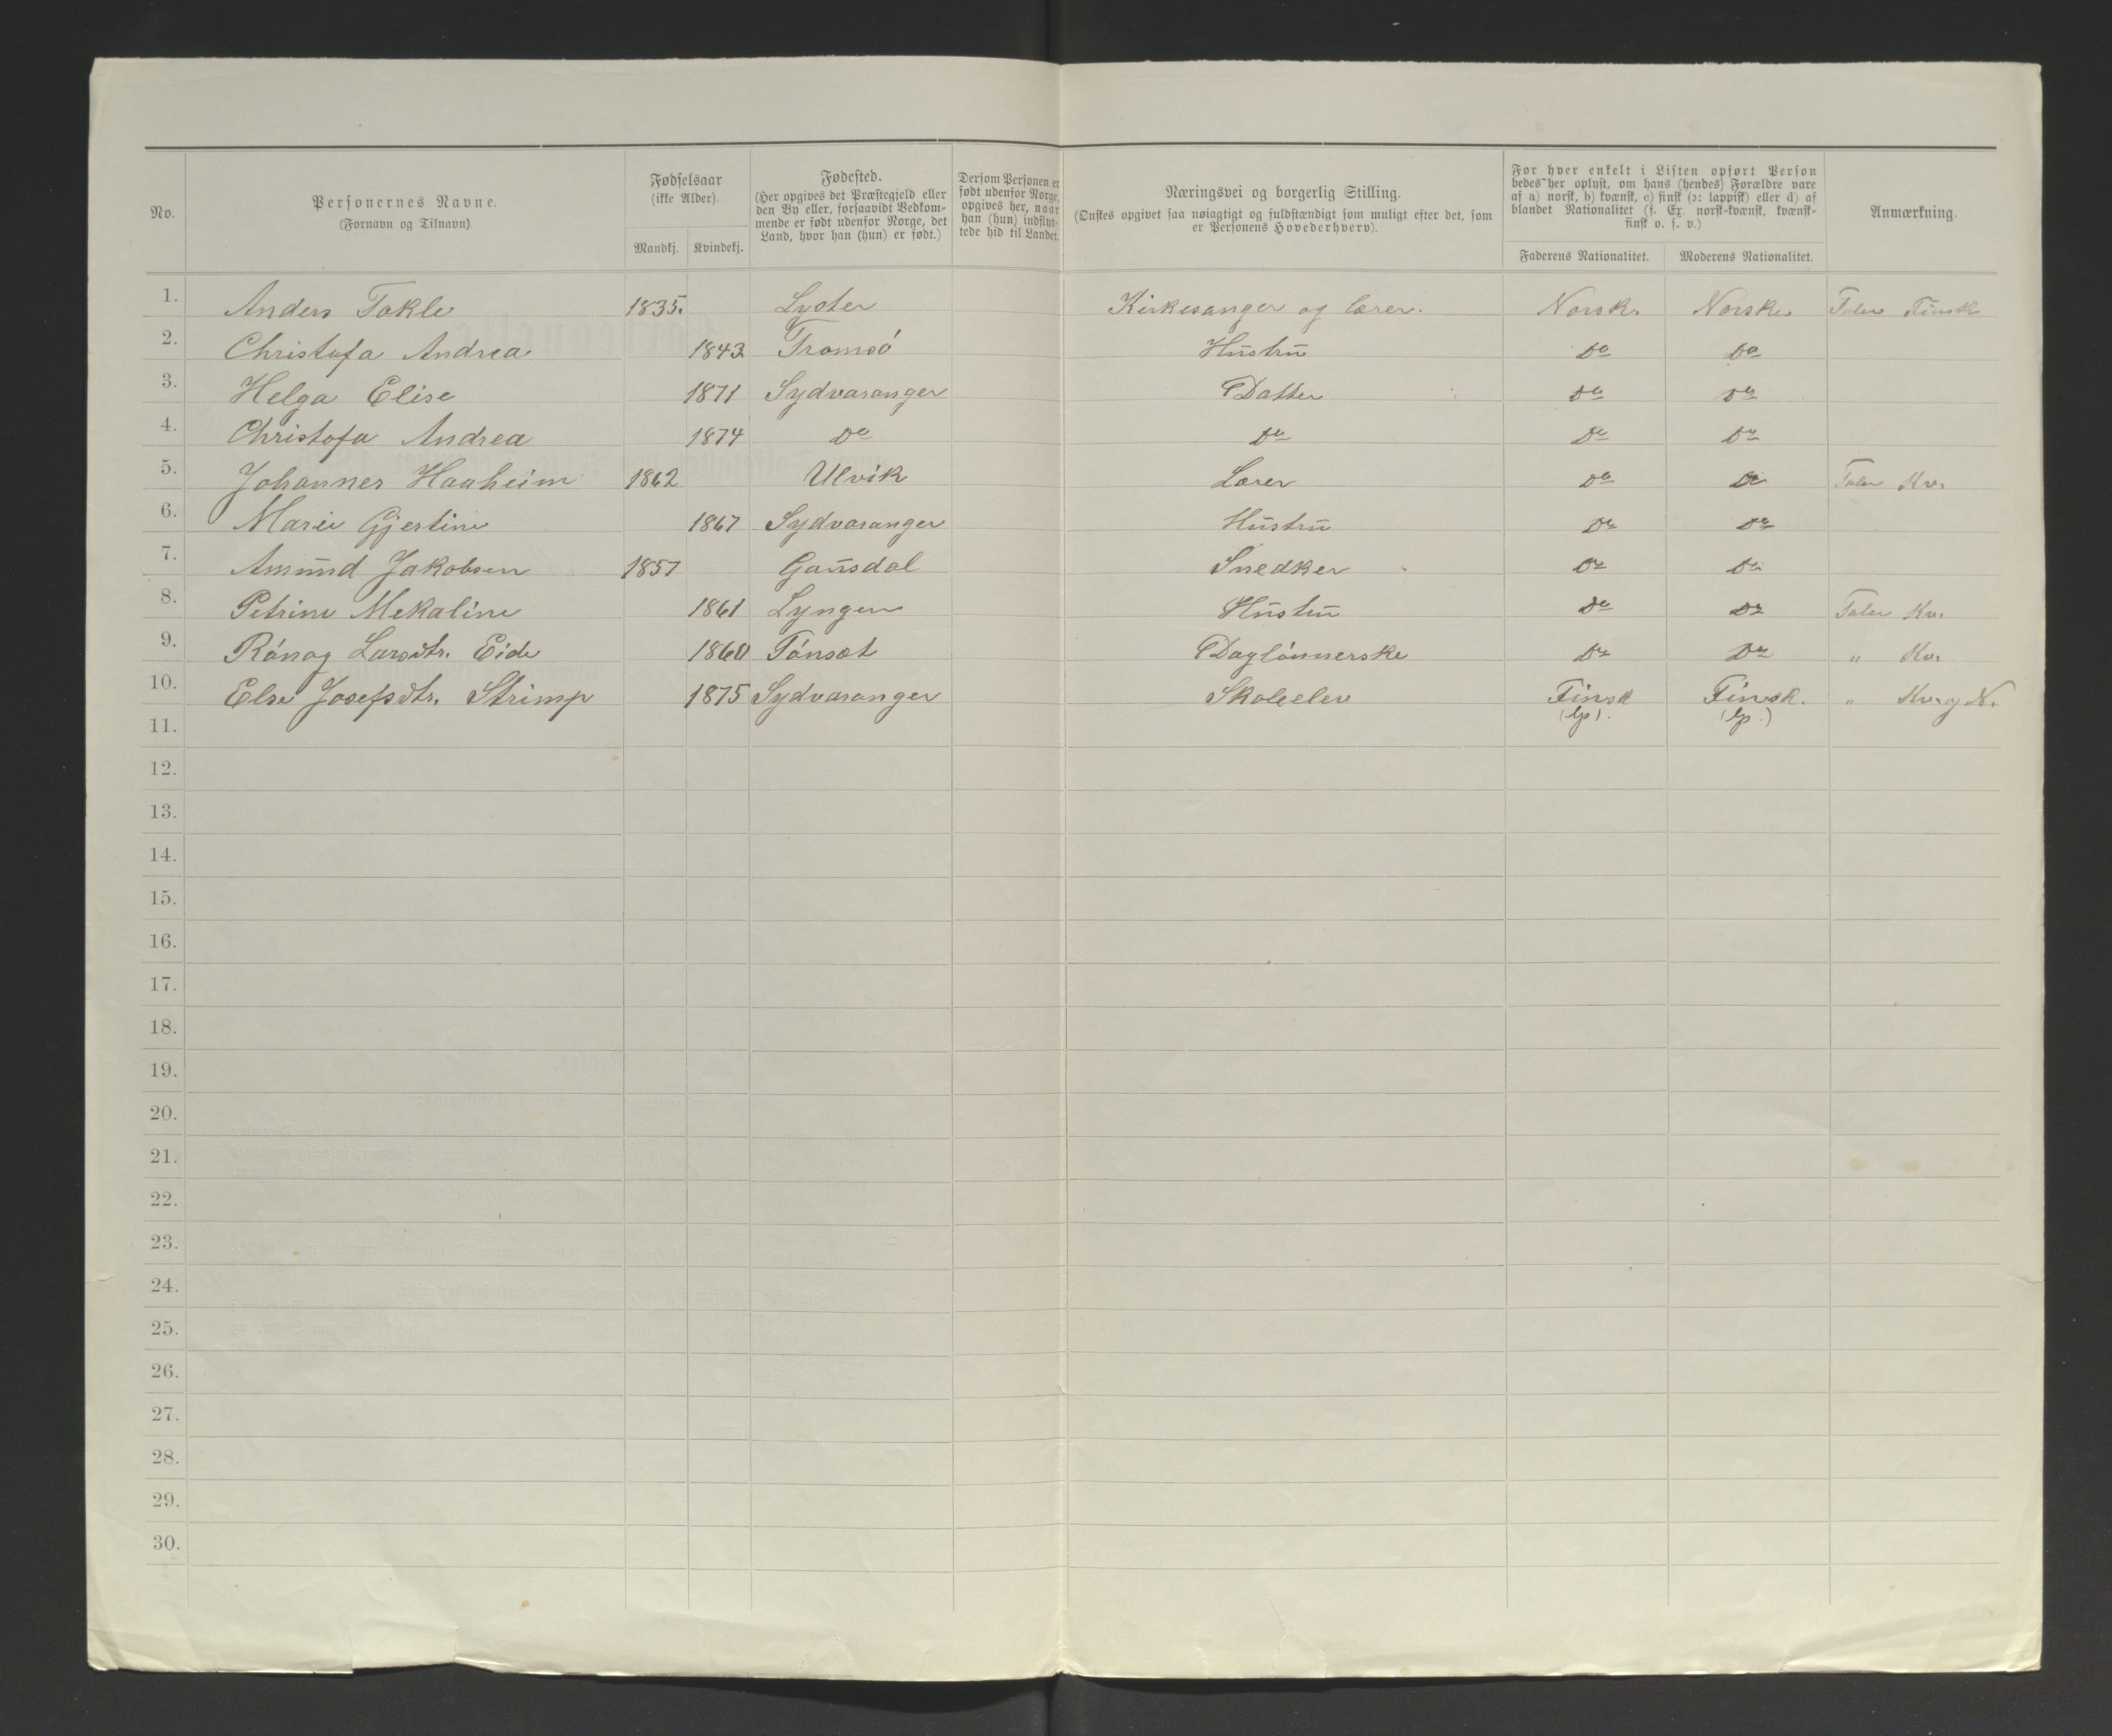 No.
Personernes Navne.
(Fornavn og Tilnavn).
Fødselsaar
(ikke Alder).
Mandkj.
Kvindekj.
Fødested.
(Her opgives det Præstegjeld eller
den By eller, forsaavidt Vedkom-
mende er født udenfor Norge, det
Land, hvor han (hun) er født.)
Dersom Personen er
født udenfor Norge,
opgives her, naar
han (hun) indflyt-
tede hid til Landet.
Næringsvei og borgerlig Stilling.
(Ønskes opgivet saa nøiagtigt og fuldstændigt som muligt efter det, som
er Personens Hovederhverv).
For hver enkelt i Listen opført Person
bedes her oplyst, om hans (hendes) Forældre vare
af a) norsk, b) kvænsk, c) finsk (ɔ: lappisk) eller d) af
blandet Nationalitet (f. Ex. norsk-kvænsk, kvænsk-
finsk o. s. v.)
Faderens Nationalitet.
Moderens Nationalitet.
Anmærkning.
1. Anders Tokle 1835. Lyster Kirkesanger og lærer. Norsk. Norske Taler Finsk
2. Christofa Andrea 1843 Tromsö Hustru Do Do
3. Helga Elise 1871 Sydvaranger Datter Do Do
4. Christofa Andrea 1874 Do Do Do Do
5. Johannes Haaheim 1862 Ulvik Lærer Do Do Taler Kv.
6. Marie Gjertine 1867 Sydvaranger Hustru Do Do
7. Amund Jakobsen 1857 Gausdal Snedker Do Do
8. Petrine Mekaline 1861 Lyngen Hustru Do Do Taler Kv.
9. Rónog Larsdtr. Eide 1860 Tónset Daglónnerske Do Do " Kv.
10. Else Josefsdtr. Strimp 1875 Sydvaranger Skoleelev Finsk Finsk. " Kv. og N.
(lp). (lp.)
11.
12.
13.
14.
15.
16.
17.
18.
19.
20.
21.
22.
23.
24.
25.
26.
27.
28.
29.
30.